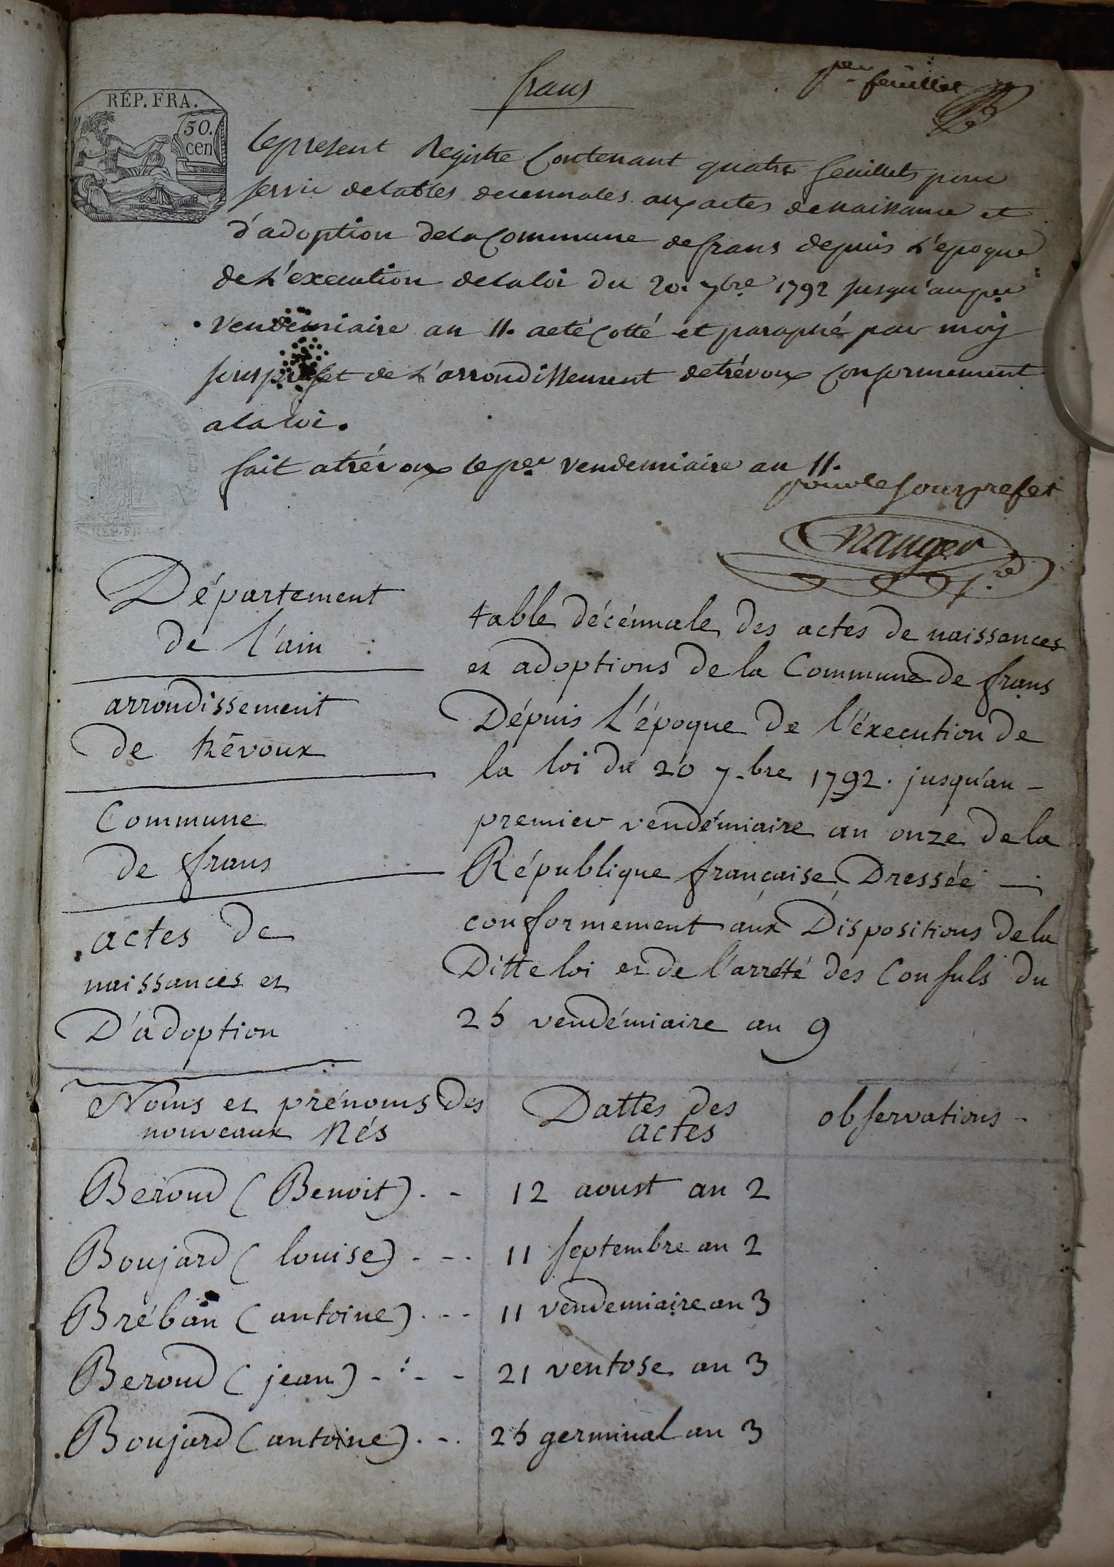 frans
per feuillet
RÉP. FRA.
50.
cen
le present Registre Contenant quatre feuillets pour
servir de tables decennales aux actes de naissance et
d'adoption de la Commune de frans depuis L'epoque
de L'execution de la loi du 20. 7bre 1792 jusqu'au per
vendemiaire an 11. a eté Cotté et paraphé par moy
sous prefet de L'arrondissement de trévoux conformement
a la loi.
fait a trévoux le per vendemiaire an 11.
pour le sous prefet
Département
de l'ain
arrondissement
de trévoux
Commune
de frans
actes de
naissances et
D'adoption
table décénnale des actes de naissances
et adoptions de la Commune de frans
Dépuis L'époque de l'éxecution de
la loi du 20 7-bre 1792. jusqu'au -
premier vendémiaire an onze de la
République française Dressée -
conformement aux Dispositions de la
Ditte loi et de l'arrété des Consuls du
25 vendémiaire an 9
Noms et prénoms des Dattes des observations -
nouveaux Nés actes
Beroud (Benoit) . - 12 aoust an 2
Boujard (louise) . - - 11 septembre an 2
Bréban (antoine) . - - 11 vendemiaire an 3
Beroud (jean) - - - 21 ventose an 3
Boujard (antoine) . - . 25 germinal an 3